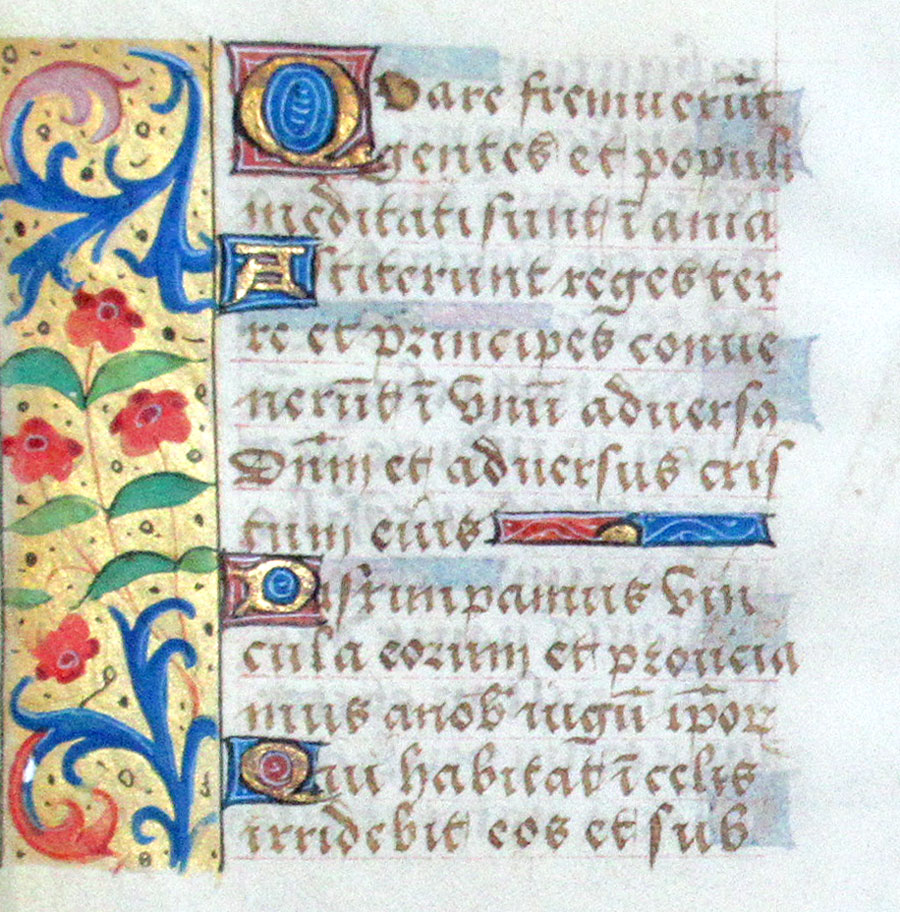 Quare fremuerūt
gentes et populi
meditati sunt ī ania
Astiterunt reges ter
re et principes conue
nerūt ī vnū aduersꝯ
Dn̄m et aduersus cris
tum eius
Disrumpamus vin
cula eorum et proiicia
mus anob iugū ip̄orꝝ
Qui habitat ī celis
irridebit eos et sub